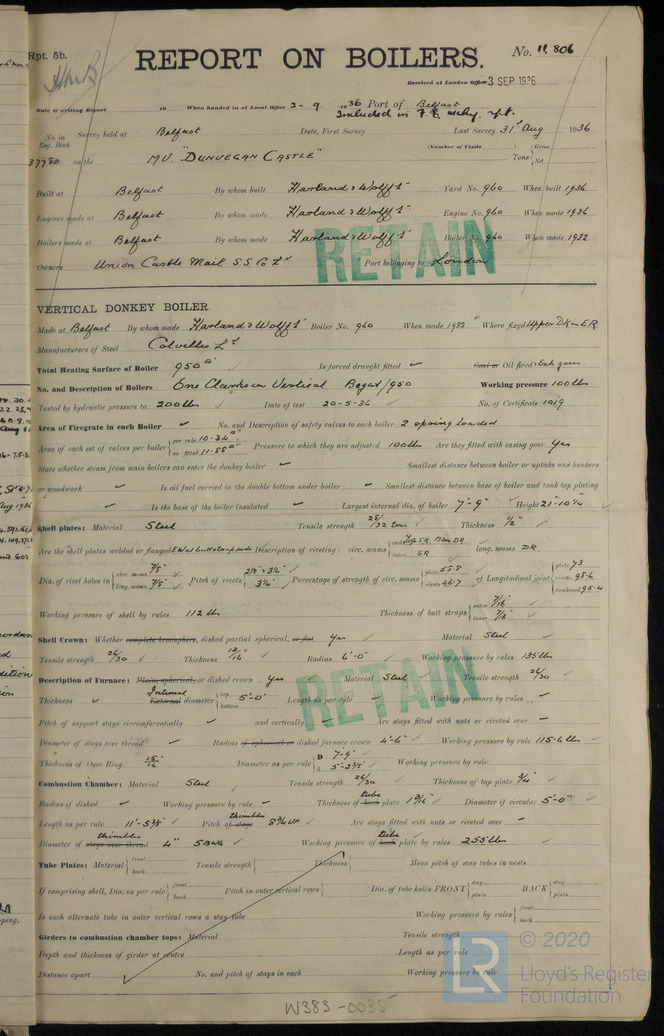 Rpt. 5b.
REPORT ON BOILERS.
No. 11,806
Received at London Office 3 SEP 1936
Date of writing Report 19 When handed in at Local Office 2-9. 1936 Port of Belfast
Included in F.E. mchy. rpt.
No. in Reg. Book Survey held at Belfast Date, First Survey Last Survey 31st Aug 1936
(Number of Visits
37750 on the MV "DUNVEGAN CASTLE" Tons { Gross Net
Built at Belfast By whom built Harland & Wolff Ld Yard No. 960 When built 1936
Engines made at Belfast By whom made Harland & Wolff Ld Engine No. 960 When made 1936
Boilers made at Belfast By whom made Harland & Wolff Ld Boiler No. 960 When made 1932
Owners Union Castle Mail S.S. Co Ld Port belonging to London
RETAIN
VERTICAL DONKEY BOILER
Made at Belfast By whom made Harland & Wolff Ld Boiler No. 960 When made 1932 Where fixed Upper Dk in ER
Manufacturers of Steel Colvilles Ld
Total Heating Surface of Boiler 950 Is forced draught fitted Coal or Oil fired & Exh gases.
No. and Description of Boilers One Clarkson Vertical Working pressure 100 lbs
Tested by hydraulic pressure to 200 lbs Date of test 20-5-36 No. of Certificate 1019
Area of Firegrate in each Boiler No. and Description of safety valves to each boiler 2 spring loaded
Area of each set of valves per boiler { per rule 10.34 as fitted 11.88 Pressure to which they are adjusted 100 lbs Are they fitted with easing gear Yes
State whether steam from main boilers can enter the donkey boiler Smallest distance between boiler or uptake and bunkers
or woodwork Is oil fuel carried in the double bottom under boiler Smallest distance between base of boiler and tank top plating
Is the base of the boiler insulated Largest internal dia. of boiler 7'-9" Height 21'-10 1/4"
Shell plates: Material Steel Tensile strength 28/32 tons Thickness 1/2"
Are the shell plates welded or flanged Description of riveting: circ. seams { end Top S.R. Btm DR inter. SR long. seams DR.
Dia. of rivet holes in { circ. seams 7/8" long. seams 7/8" Pitch of rivets Percentage of strength of circ. seams { plate 55.8 rivets 46.7 of Longitudinal joint { plate 73 rivets combined
Working pressure of shell by rules 112 lbs Thickness of butt straps { outer 7/16" inner 7/16"
Shell Crown: Whether complete hemisphere, dished partial spherical, or flat Yes Material Steel
Tensile strength 26/30 Thickness 13/16" Radius 6'-0" Working pressure by rules 135 lbs
RETAIN
Description of Furnace: Plain, spherical, or dished crown Yes Material Steel Tensile strength 26/30
Thickness Internal External diameter { top bottom 5'-0" Length as per rule Working pressure by rules
Pitch of support stays circumferentially and vertically Are stays fitted with nuts or riveted over
Diameter of stays over thread Radius of spherical or dished furnace crown 4'-6" Working pressure by rule 115.6 lbs
Thickness of Ogee Ring 15/16 Diameter as per rule { D 7'-9" d Working pressure by rule
Combustion Chamber: Material Steel Tensile strength 26/30 Thickness of top plate 3/4"
Radius if dished Working pressure by rule Thickness of tube back plate Diameter if circular 5'-0"
Length as per rule 11'-5 7/8" Pitch of thimbles stays Are stays fitted with nuts or riveted over
Diameter of thimbles stays over thread 4" Working pressure of tube back plate by rules 255 lbs
Tube Plates: Material { front back Tensile strength { Thickness { Mean pitch of stay tubes in nests
If comprising shell, Dia. as per rule { front back Pitch in outer vertical rows { Dia. of tube holes FRONT { stay plain BACK { stay plain
Is each alternate tube in outer vertical rows a stay tube Working pressure by rules { front back
Girders to combustion chamber tops: Material Tensile strength
Depth and thickness of girder at centre Length as per rule
Distance apart No. and pitch of stays in each Working pressure by rule
W383-0035
LR
© 2020
Lloyd's Register
Foundation